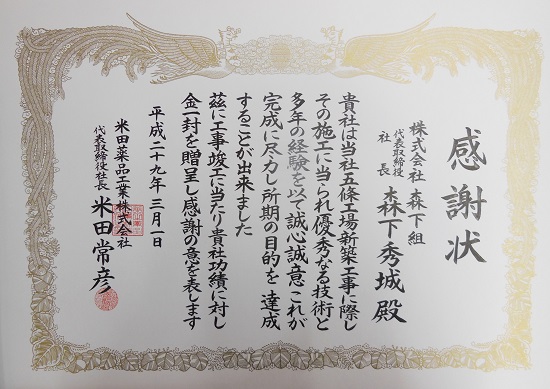 感謝状
株式会社 森下組
代表取締役
社長 森下秀城殿
貴社は当社五條工場新築工事に際し
その施工に当られ優秀なる技術と
多年の経験を以て誠心誠意これが
完成に尽力し所期の目的を達成
することが出来ました
茲に工事竣工に当たり貴社功績に対し
金一封を贈呈し感謝の意を表します
平成二十九年三月一日
米田薬品工業株式会社
代表取締役社長 米田常彦